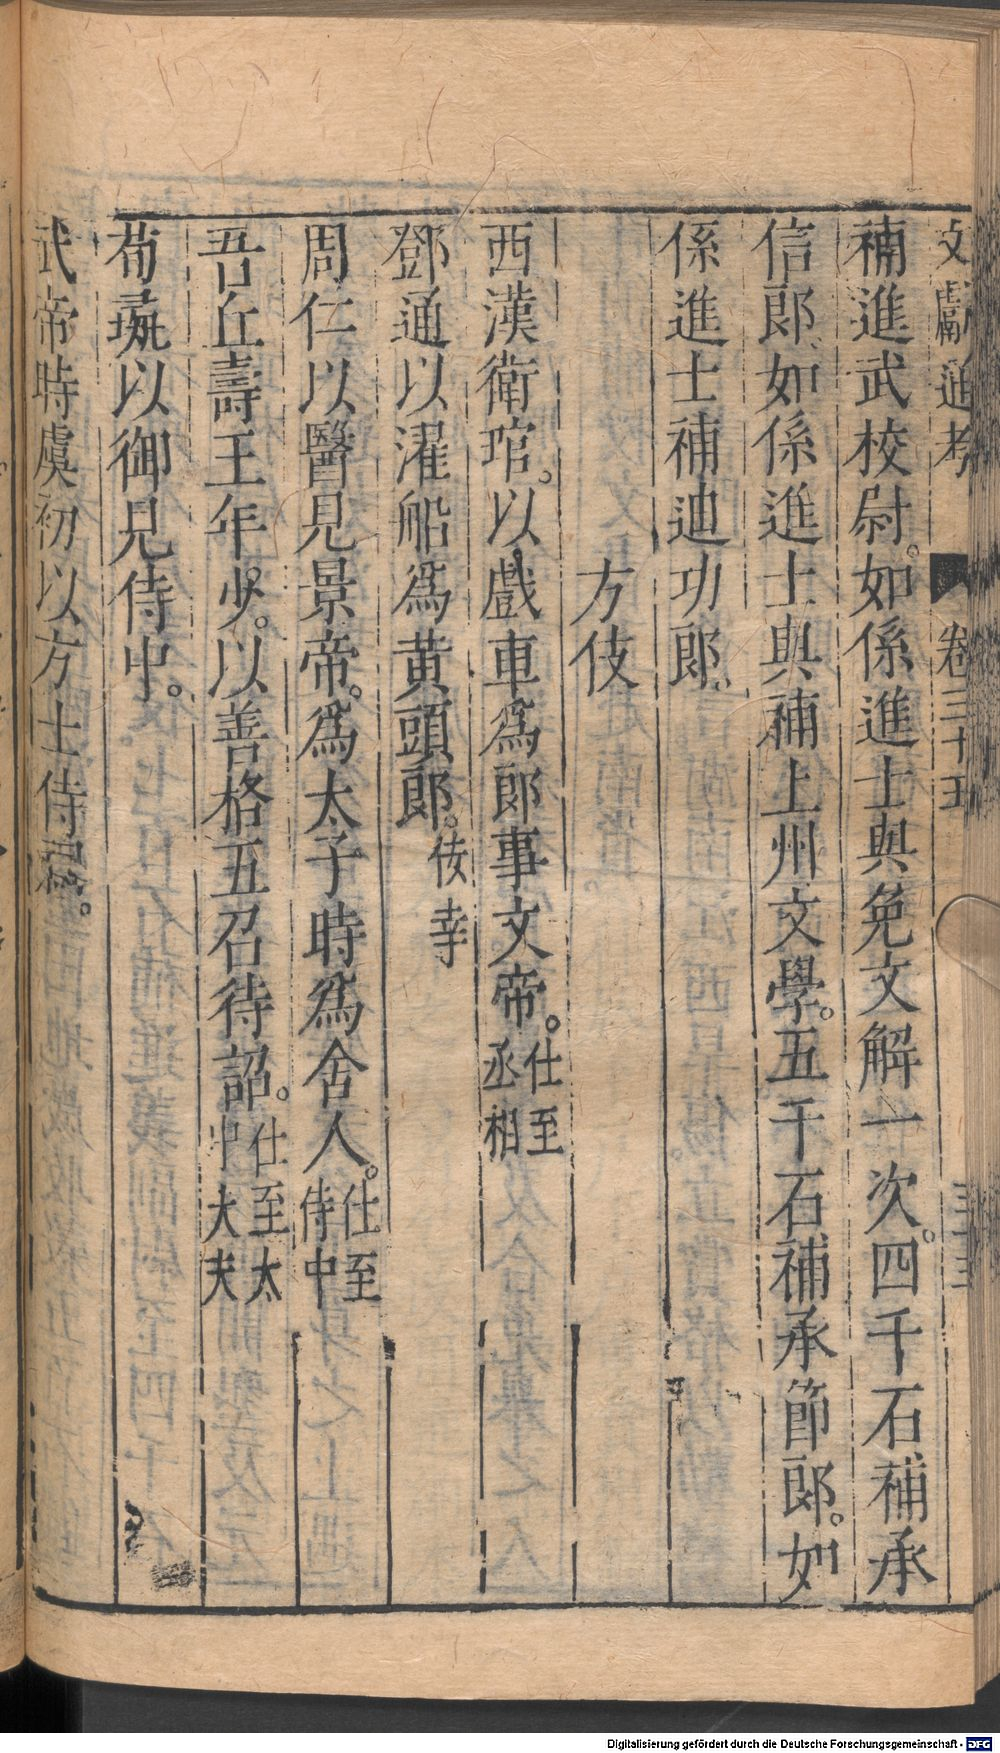 文獻通考 卷三十五 三十三
補進武校尉。如係進士與免文解一次。四千石補承
信郎、如係進士與補上州文學。五千石補承節郎。如
係進士補迪功郎。
方伎
西漢衛琯。以戲車爲郎事文帝。仕至丞相
鄧通以濯船爲黄頭郎。佞幸
周仁以醫見景帝。爲太子時爲舍人。仕至侍中
吾丘壽王年少。以善格五召待詔。仕至太中大夫
荀彘以御見侍中。
武帝時虞初以方士侍郎。
Digitalisierung gefördert durch die Deutsche Forschungsgemeinschaft - DFG